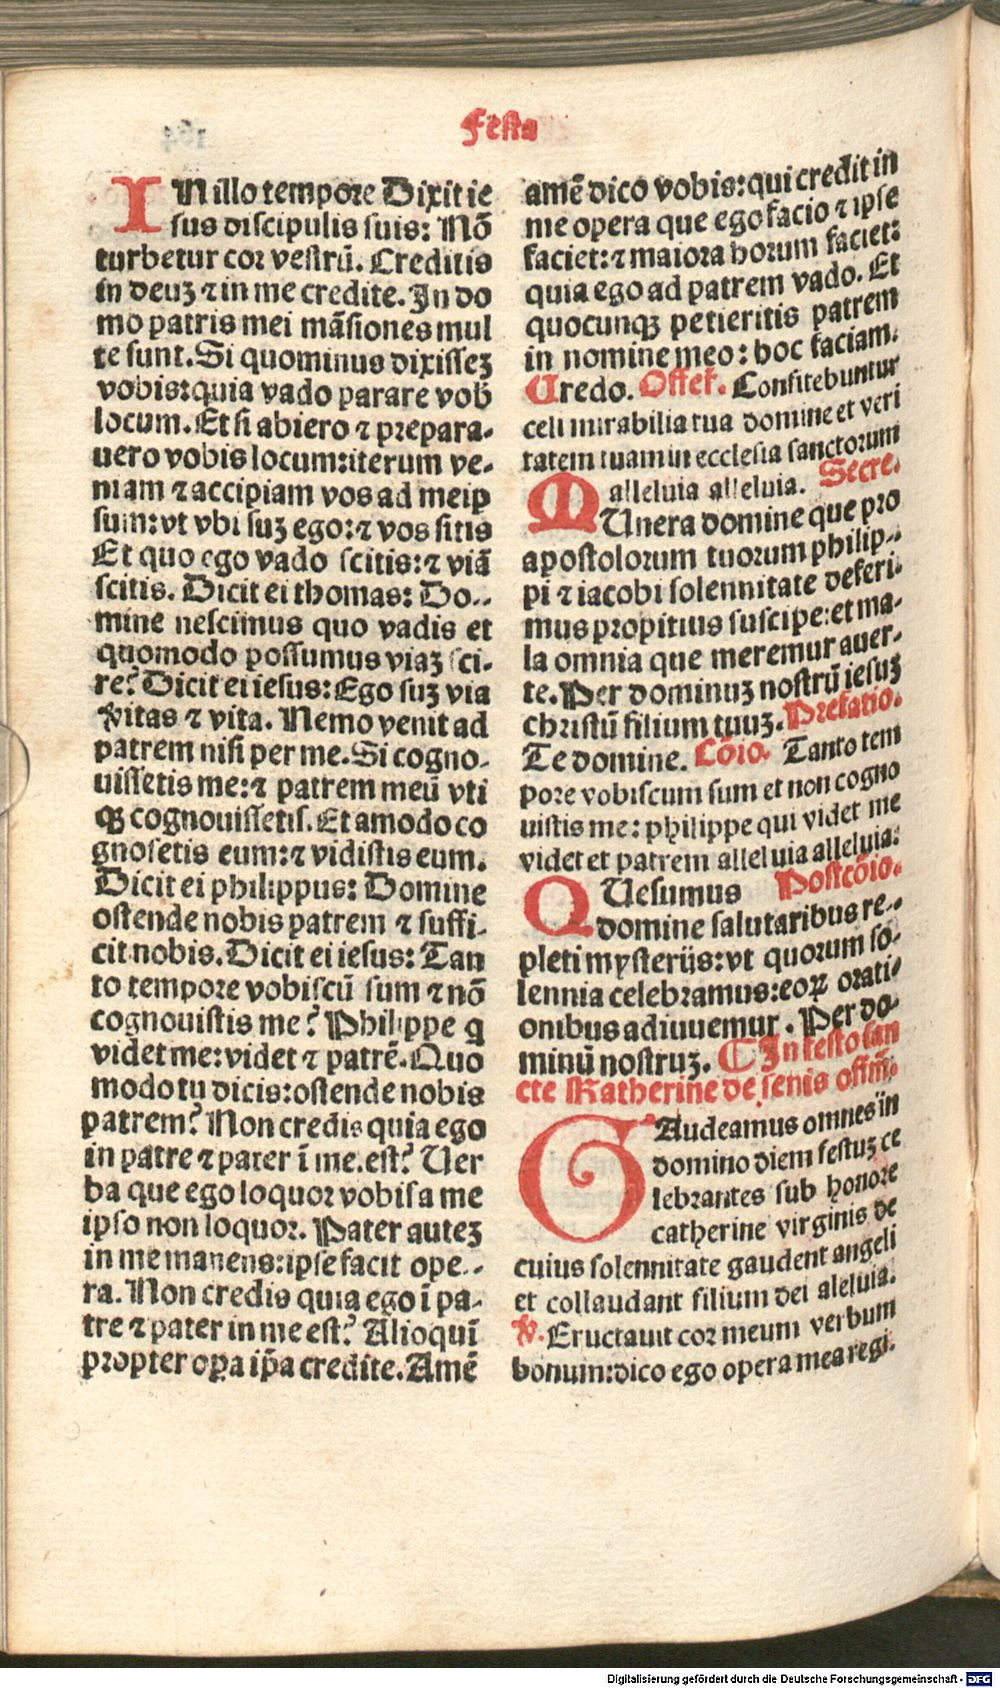 Festa
IN illo tempore Dixit ie
sus discipulis suis: Nō
turbetur cor vestrū. Creditis
in deuꝫ ⁊ in me credite. In do
mo patris mei māsiones mul
te sunt. Si quominus dixisseꝫ
vobis: quia vado parare vob
locum. Et si abiero ⁊ prepara-
uero vobis locum: iterum ve-
niam ⁊ accipiam vos ad meip
sum: vt vbi suꝫ ego: ⁊ vos sitis
Et quo ego vado scitis: ⁊ viā
scitis. Dicit ei thomas: Do-
mine nescimus quo vadis et
quomodo possumus viaꝫ sci-
re? Dicit ei iesus: Ego suꝫ via
v̾itas ⁊ vita. Nemo venit ad
patrem nisi per me. Si cogno-
uissetis me: ⁊ patrem meū vti
qꝫ cognouissetis. Et amodo co
gnosetis eum: ⁊ vidistis eum.
Dicit ei philippus: Domine
ostende nobis patrem ⁊ suffi-
cit nobis. Dicit ei iesus: Tan
to tempore vobiscū sum ⁊ nō
cognouistis me? Philippe q
videt me: videt ⁊ patrē. Quo
modo tu dicis: ostende nobis
patrem? Non credis quia ego
in patre ⁊ pater ī me. est? Uer
ba que ego loquor vobis a me
ipso non loquor. Pater auteꝫ
in me manens: ipse facit ope-
ra. Non credis quia ego ī pa-
tre ⁊ pater in me est? Alioquī
propter oꝑa ip̄a credite. Amē
amē dico vobis: qui credit in
me opera que ego facio ⁊ ipse
faciet: ⁊ maiora horum faciet:
quia ego ad patrem vado. Et
quocunqꝫ petieritis patrem
in nomine meo: hoc faciam.
Credo. Offer̄. Confitebuntur
celi mirabilia tua domine et veri
tatem tuam in ecclesia sanctorum
alleluia alleluia. Secre.
MUnera domine que pro
apostolorum tuorum philip-
pi ⁊ iacobi solennitate deferi-
mus propitius suscipe: et ma-
la omnia que meremur auer-
te. Per dominuꝫ nostrū iesuꝫ
christū filium tuuꝫ. Prefatio.
Te domine. Cōio. Tanto tem
pore vobiscum sum et non cogno
uistis me: philippe qui videt me
videt et patrem alleluia alleluia.
QUesumus Postcōio.
domine salutaribus re-
pleti mysteriis: vt quorum so-
lennia celebramus: eoꝝ orati-
onibus adiuuemur. Per do-
minū nostruꝫ. ¶ In festo san
cte Katherine de senis offm̄.
GAudeamus omnes in
domino diem festuꝫ ce
lebrantes sub honore
catherine virginis de
cuius solennitate gaudent angeli
et collaudant filium dei aleluia.
℣. Eructauit cor meum verbum
bonum: dico ego opera mea regi.
Digitalisierung gefördert durch die Deutsche Forschungsgemeinschaft - DFG